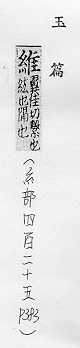 玉篇
維 翼隹切繫也
紘也
(糸部四百二十五 P393)